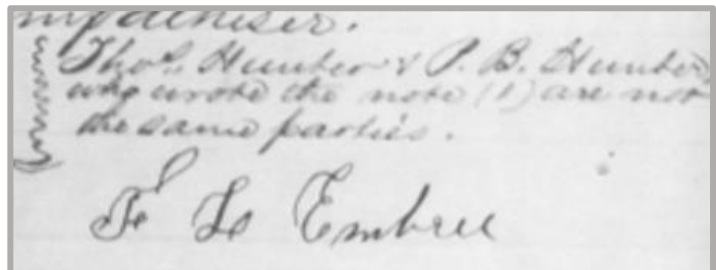 Thos. Hunter & P. B. Hunter
who wrote the note (1) are not
the same parties.
F L Embree